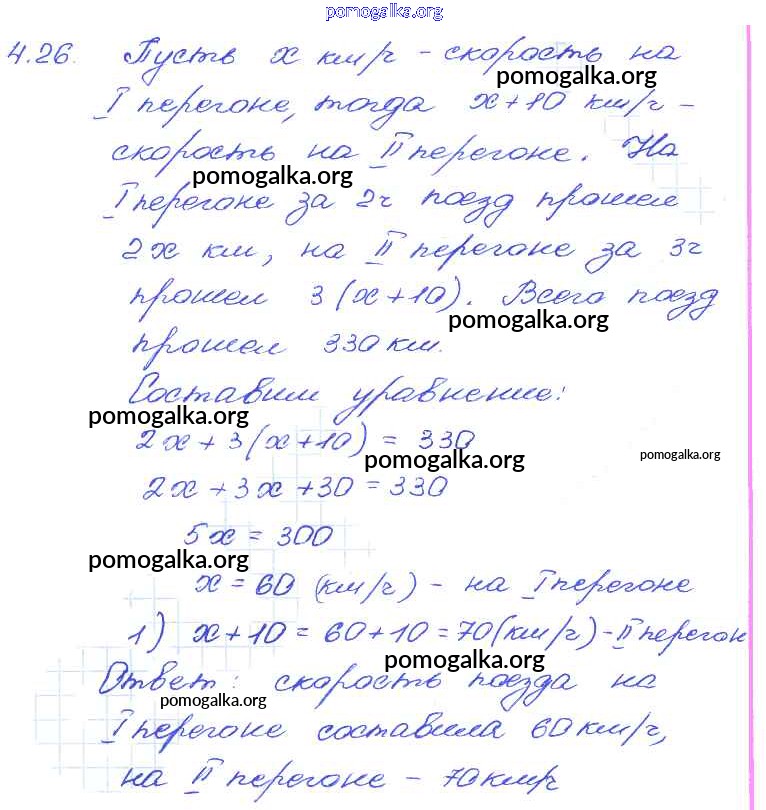 pomogalka.org
4.26. Пусть x км/ч - скорость на
pomogalka.org
I перегоне, тогда x+10 км/ч -
скорость на II перегоне. На
pomogalka.org
I перегоне за 2ч поезд прошел
2x км, на II перегоне за 3ч
прошел 3(x+10). Всего поезд
pomogalka.org
прошел 330 км.
Составим уравнение:
pomogalka.org
2x + 3(x+10) = 330
pomogalka.org
pomogalka.org
2x + 3x + 30 = 330
5x = 300
pomogalka.org
x = 60 (км/ч) - на I перегоне
1) x + 10 = 60 + 10 = 70 (км/ч) - II перегон
pomogalka.org
Ответ: скорость поезда на
pomogalka.org
I перегоне составила 60 км/ч,
на II перегоне - 70 км/ч